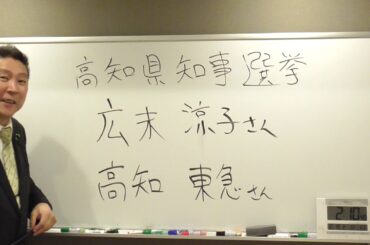 高知県知事選挙
広末 涼子さん
高知 東急さん